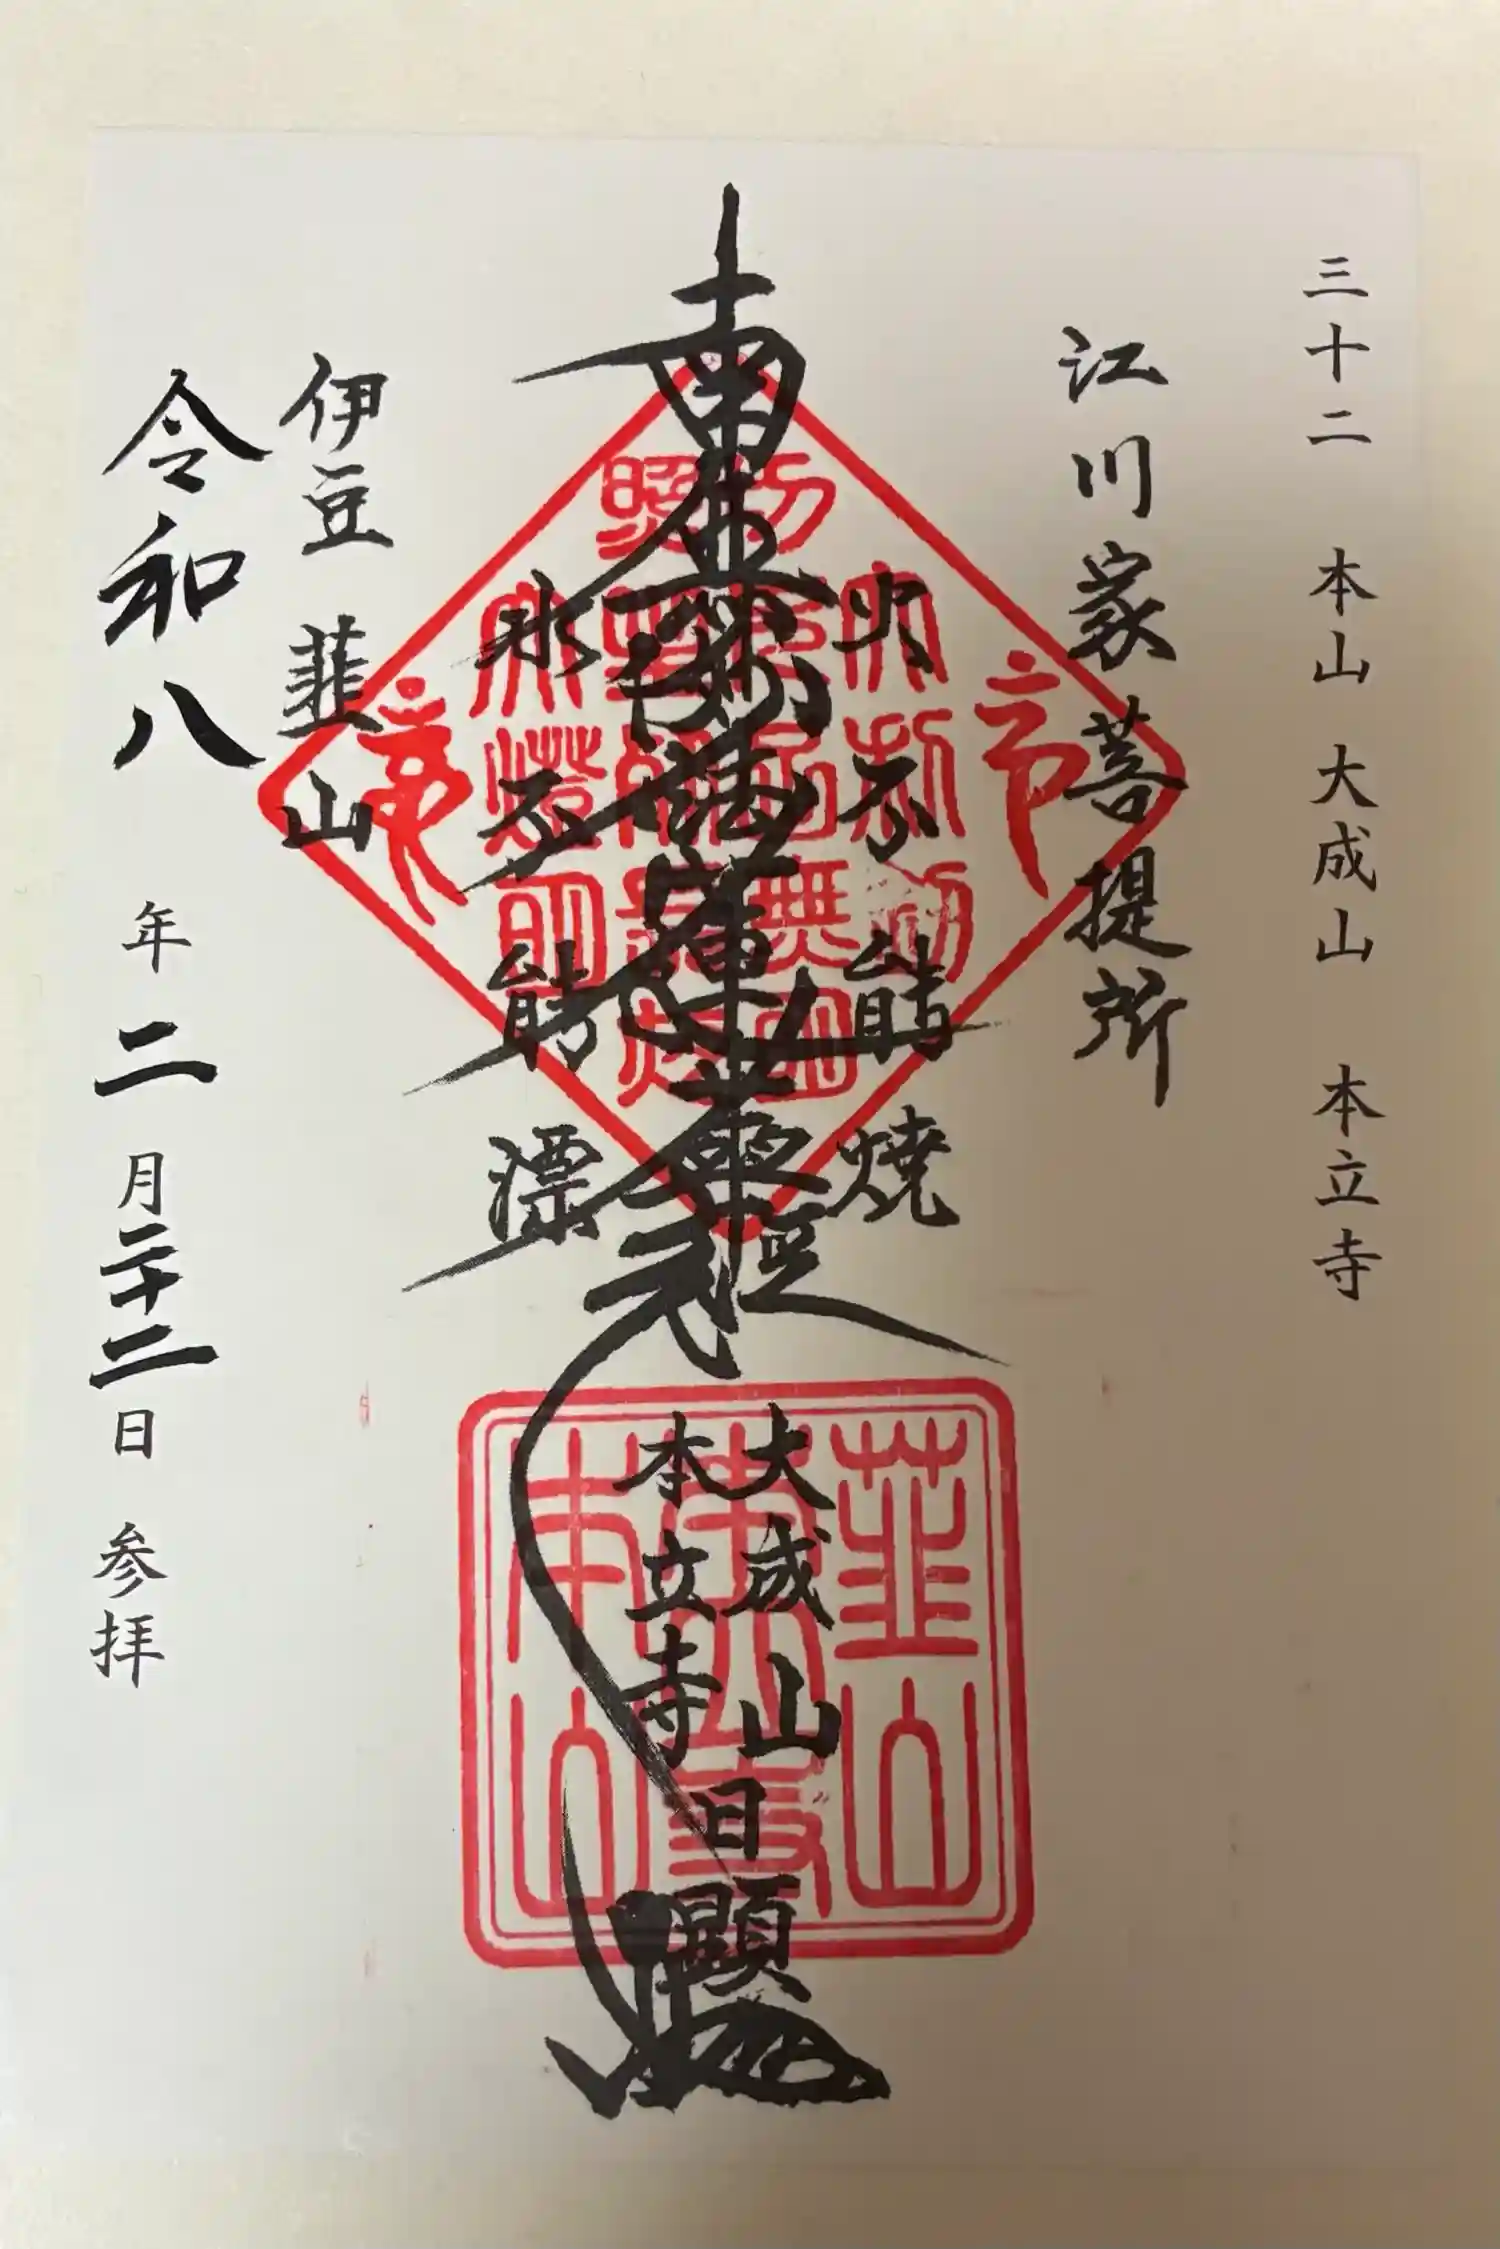 三十二 本山 大成山 本立寺
江川家菩提所
火不能焼
南無妙法蓮華経
水不能漂
大成山
本立寺
日顯
伊豆 韮山
令和八年二月二十二日 参拝
韮山
本山